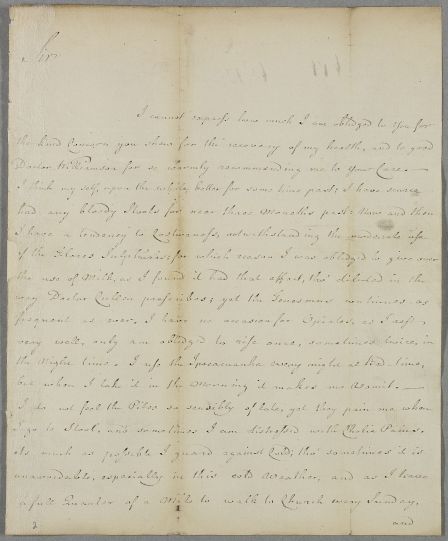 Sir
I cannot express how much I am obliged to You for
the kind Concern you show for the recovery of my health, and to good
Doctor Williamson for so warmly recommending me to Your Care. —
I think my self, upon the whole, better for some time past; I have scarce
had any bloody Stools for near three Months past: Now and then
I have a tendency to Costiveness, notwithstanding the moderate use
of the Flores Sulphuris; for which reason I was obliged to give over
the use of Milk, as I found it had that effect, tho' diluted in the
way Doctor Cullen prescribes; yet the Tenesmus continues as
frequent as ever. I have no occasion for Opiates, as I rest
very well, only am obliged to rise once, sometimes twice, in
the Night time. I use the Ipecacuanha every night at Bed-time,
but when I take it in the Morning it makes me Vomit. —
I do not feel the Piles so sensibly of late, yet they pain me when
I go to Stool, and sometimes I am distressed with Cholic Pains.
As much as possible I guard against Cold; tho' sometimes it is
unavoidable, especially in this cold Weather, and as I have
a full Quarter of a Mile to walk to Church every Sunday,
and